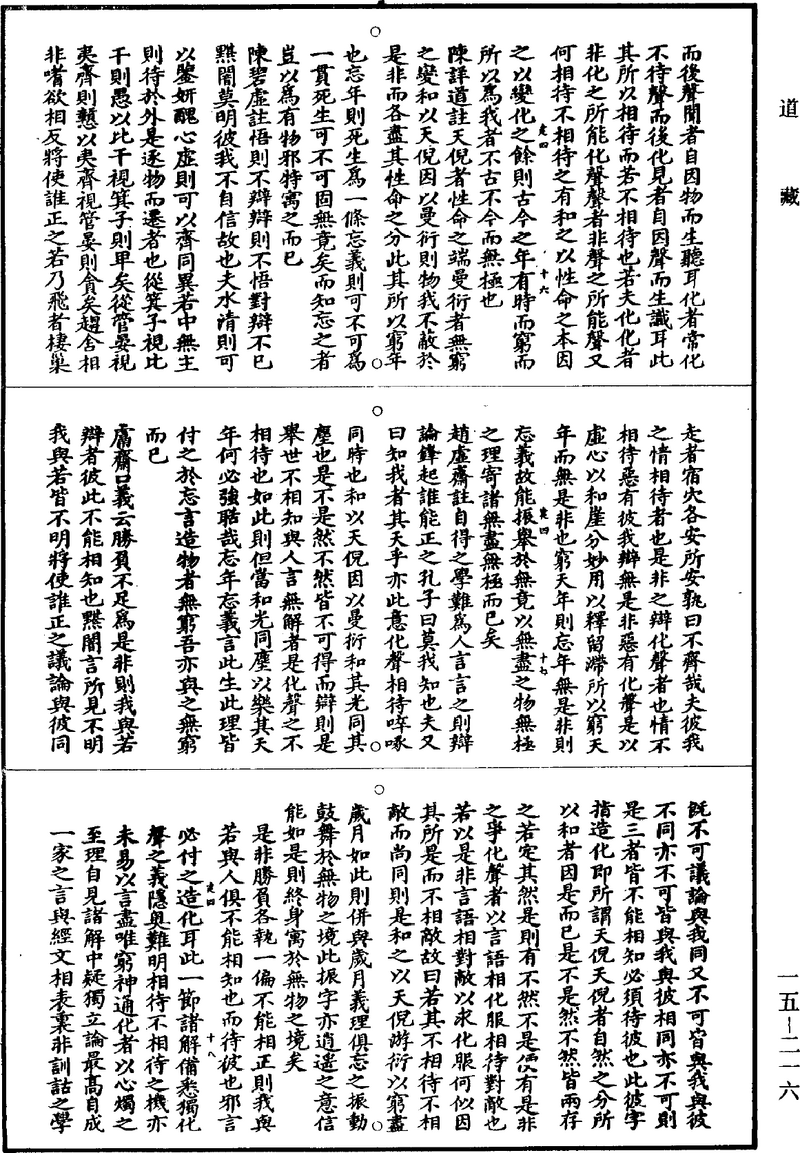 道藏
而後聲聞者自因物而生聽耳化者常化
不待聲而後化見者自因聲而生識耳此
其所以相待而若不相待也若夫化化者
非化之所能化聲聲者非聲之所能聲又
何相待不相待之有和之以性命之本因
之以變化之餘則古今之年有時而窮而
所以爲我者不古不今而無極也
陳詳道註天倪者性命之端曼衍者無窮
之變和以天倪因以曼衍則物我不蔽於
是非而各盡其性命之分此其所以窮年
也忘年則死生爲一條忘義則可不可爲
一貫死生可不可固無竟矣而知忘之者
豈以爲有物邪特寓之而已
陳碧虛註悟則不辯辯則不悟對辯不已
黮闇莫明彼我不自信故也夫水清則可
以鑒妍醜心虛則可以齊同異若中無主
則待於外是逐物而遷者也從箕子視比
干則愚以比干視箕子則卑矣從管晏視
夷齊則戇以夷齊視管晏則貪矣趨舍相
非嗜欲相反將使誰正之若乃飛者棲巢
走者宿穴各安所安孰曰不齊哉夫彼我
之情相待者也是非之辯化聲者也情不
相待惡有彼我辯無是非惡有化聲是以
虛心以和崖分妙用以釋留滯所以窮天
年而無是非也窮天年則忘年無是非則
忘義故能振舉於無竟以無盡之物無極
之理寄諸無盡無極而已矣
趙虛齋註自得之學難爲人言言之則辯
論鋒起誰能正之孔子曰莫我知也夫又
曰知我者其天乎亦此意化聲相待啐啄
同時也和以天倪因以曼衍和其光同其
塵也是不是然不然皆不可得而辯則是
舉世不相知與人言無解者是化聲之不
相待也如此則但當和光同塵以樂其天
年何必強聒哉忘年忘義言此生此理皆
付之於忘言造物者無窮吾亦與之無窮
而已
鬳齋口義云勝負不足爲是非則我與若
辯者彼此不能相知也黮闇言所見不明
我與若皆不明將使誰正之議論與彼同
既不可議論與我同又不可皆與我與彼
不同亦不可皆與我與彼相同亦不可則
是三者皆不能相知必須待彼也此彼字
指造化即所謂天倪天倪者自然之分所
以和者因是而已是不是然不然皆兩存
之若定其然是則有不然不是便有是非
之爭化聲者以言語相化服相待對敵也
若以是非言語相對敵以求化服何似因
其所是而不相敵故曰若其不相待不相
敵而尚同則是和之以天倪游衍以窮盡
歲月如此則併與歲月義理俱忘之振動
鼓舞於無物之境此振字亦逍遥之意信
能如是則終身寓於無物之境矣
是非勝負各執一偏不能相正則我與
若與人俱不能相知也而待彼也邪言
必付之造化耳此一節諸解備悉獨化
聲之義隱奥難明相待不相待之機亦
未易以言盡唯窮神通化者以心燭之
至理自見諸解中疑獨立論最高自成
一家之言與經文相表裏非訓詁之學
一五-二一六